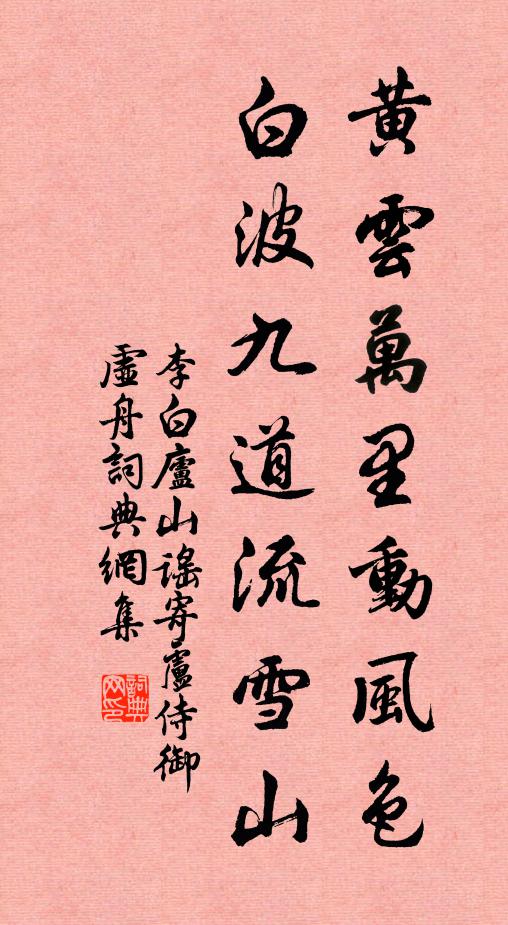 黃雲萬里動風色
白波九道流雪山
李白廬山謠寄盧侍御
虛舟詞典網集
詞典网印